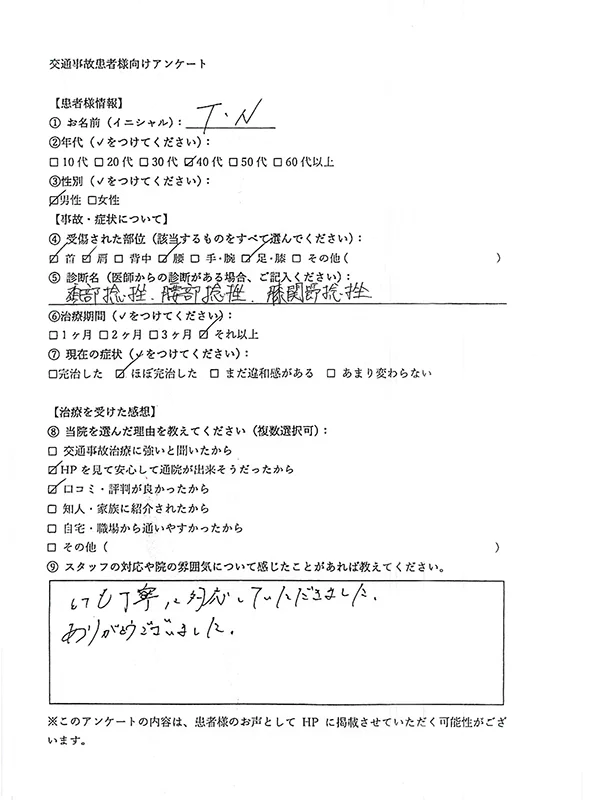 交通事故患者様向けアンケート
【患者様情報】
① お名前（イニシャル）：T・N
②年代（✓をつけてください）：
□10代 □20代 □30代 ☑40代 □50代 □60代以上
③性別（✓をつけてください）：
☑男性 □女性
【事故・症状について】
④ 受傷された部位（該当するものをすべて選んでください）：
☑ 首 ☑ 肩 □ 背中 ☑ 腰 □ 手・腕 ☑ 足・膝 □ その他（ ）
⑤ 診断名（医師からの診断がある場合、ご記入ください）：
頚部捻挫、腰部捻挫、膝関節捻挫
⑥治療期間（✓をつけてください）：
□1ヶ月 □2ヶ月 □3ヶ月 ☑ それ以上
⑦ 現在の症状（✓をつけてください）：
□完治した ☑ ほぼ完治した □ まだ違和感がある □ あまり変わらない
【治療を受けた感想】
⑧ 当院を選んだ理由を教えてください（複数選択可）：
□ 交通事故治療に強いと聞いたから
☑HPを見て安心して通院が出来そうだったから
☑ 口コミ・評判が良かったから
□ 知人・家族に紹介されたから
□ 自宅・職場から通いやすかったから
□ その他（ ）
⑨ スタッフの対応や院の雰囲気について感じたことがあれば教えてください。
とても丁寧に対応していただきました。
ありがとうございました。
※このアンケートの内容は、患者様のお声として HP に掲載させていただく可能性がござ
います。